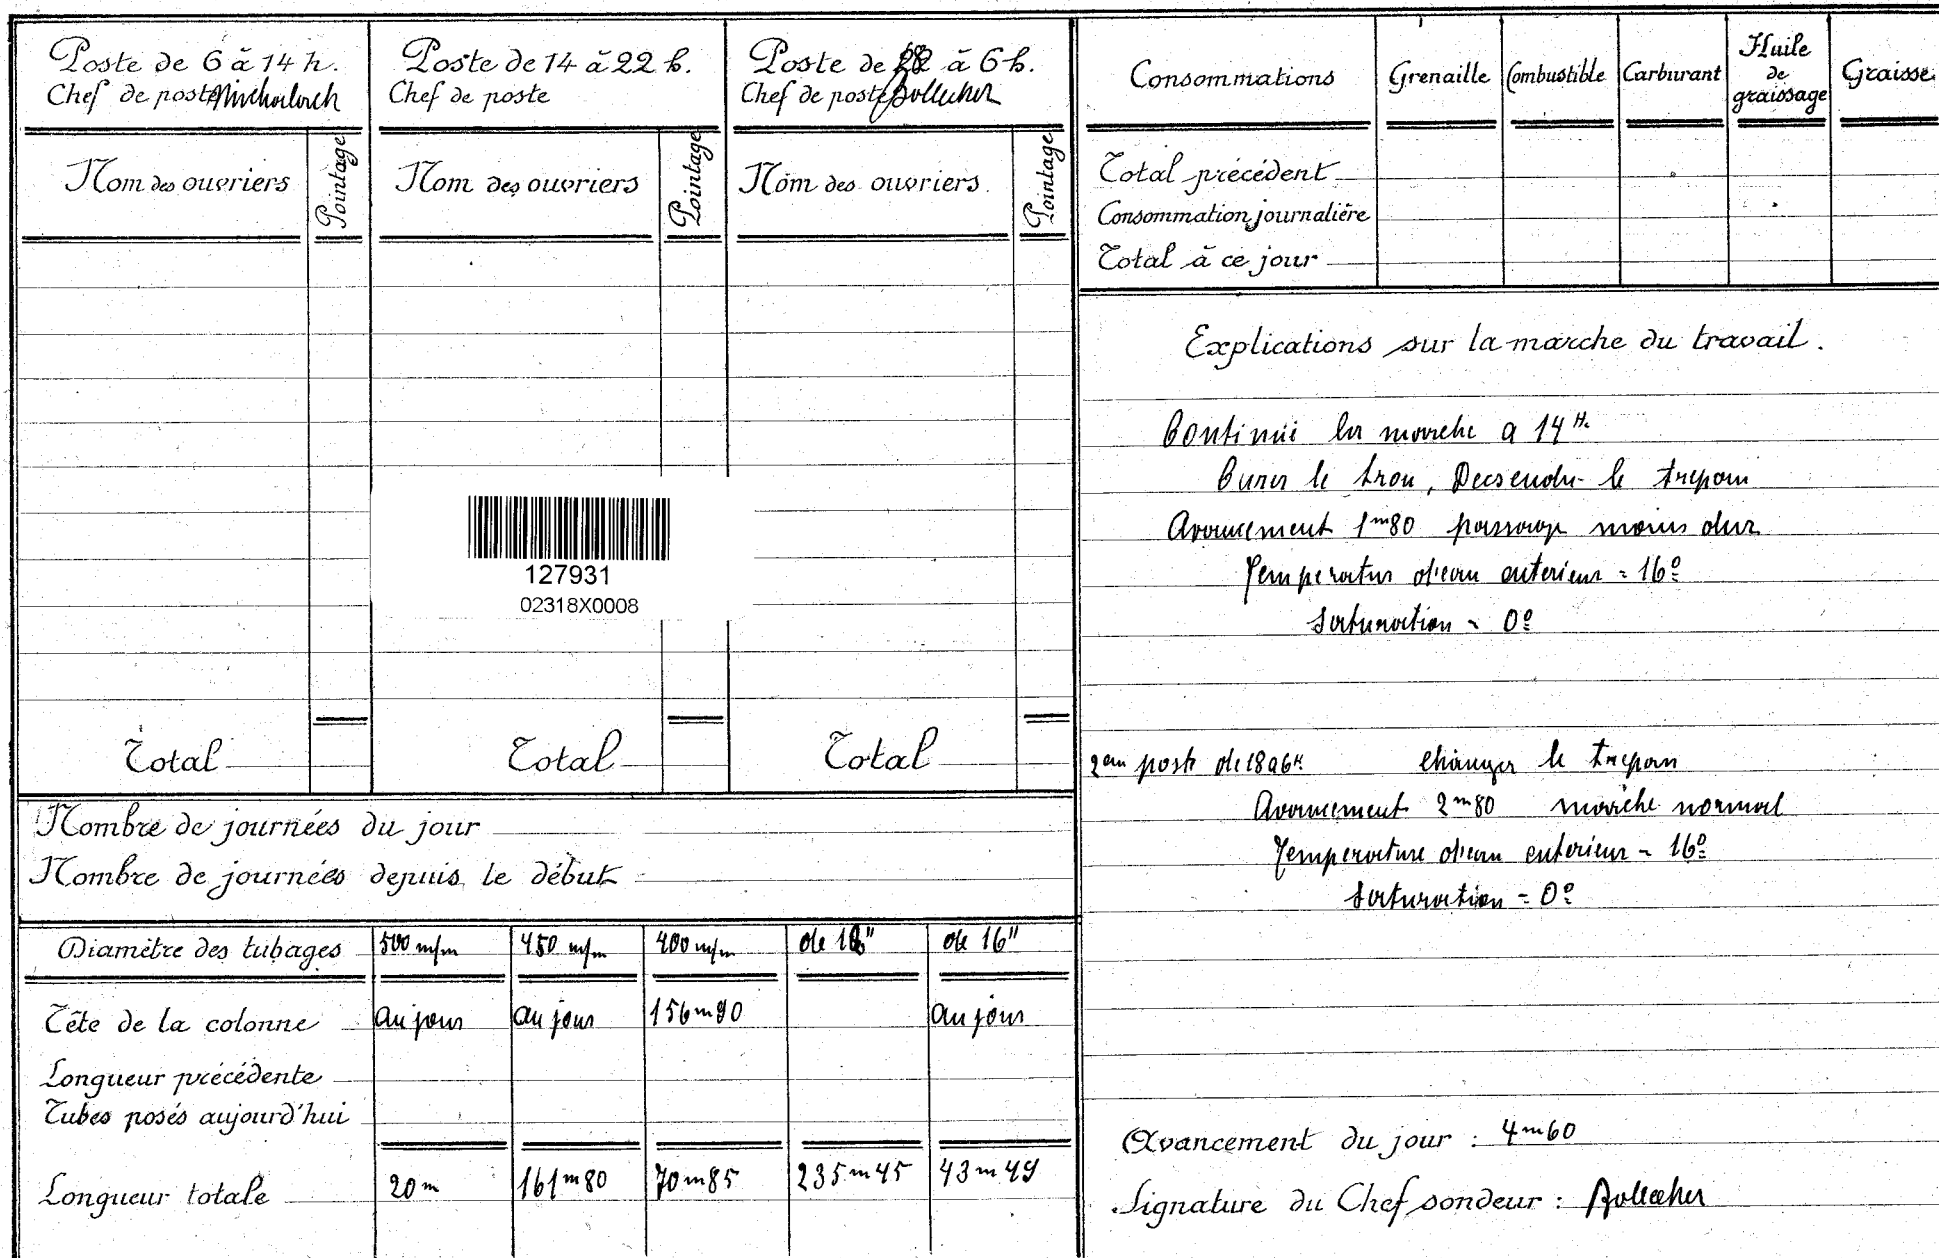 Poste de 6 à 14 h.
Chef de poste
Nom des ouvriers
Pointage
Total
Poste de 14 à 22 h.
Chef de poste
Nom des ouvriers
Pointage
Total
Poste de 18 à 6 h.
Chef de poste
Nom des ouvriers
Pointage
Total
127931
02318X0008
Nombre de journées du jour
Nombre de journées depuis le début
Diamètre des tubages 500 m/m 450 m/m 400 m/m de 16"
Tête de la colonne au jour au jour 156m90 au jour
Longueur précédente
Tubes posés aujourd'hui
Longueur totale 20m 161m80 70m85 235m45 43m49
Consommations Grenaille Combustible Carburant Huile de graissage Graisse
Total précédent
Consommation journalière
Total à ce jour
Explications sur la marche du travail.
Continué la marche a 14 H.
Curer le trou, Decsendre le trepan
Avancement 1m80 passage moins dur
Temperatur d'eau exterieur = 16°
Saturation = 0°
2em poste de 18 a 6H changer le trepan
Avancement 2m80 marche normal
Temperature d'eau exterieur = 16°
Saturation = 0°
Avancement du jour : 4m60
Signature du Chef sondeur :